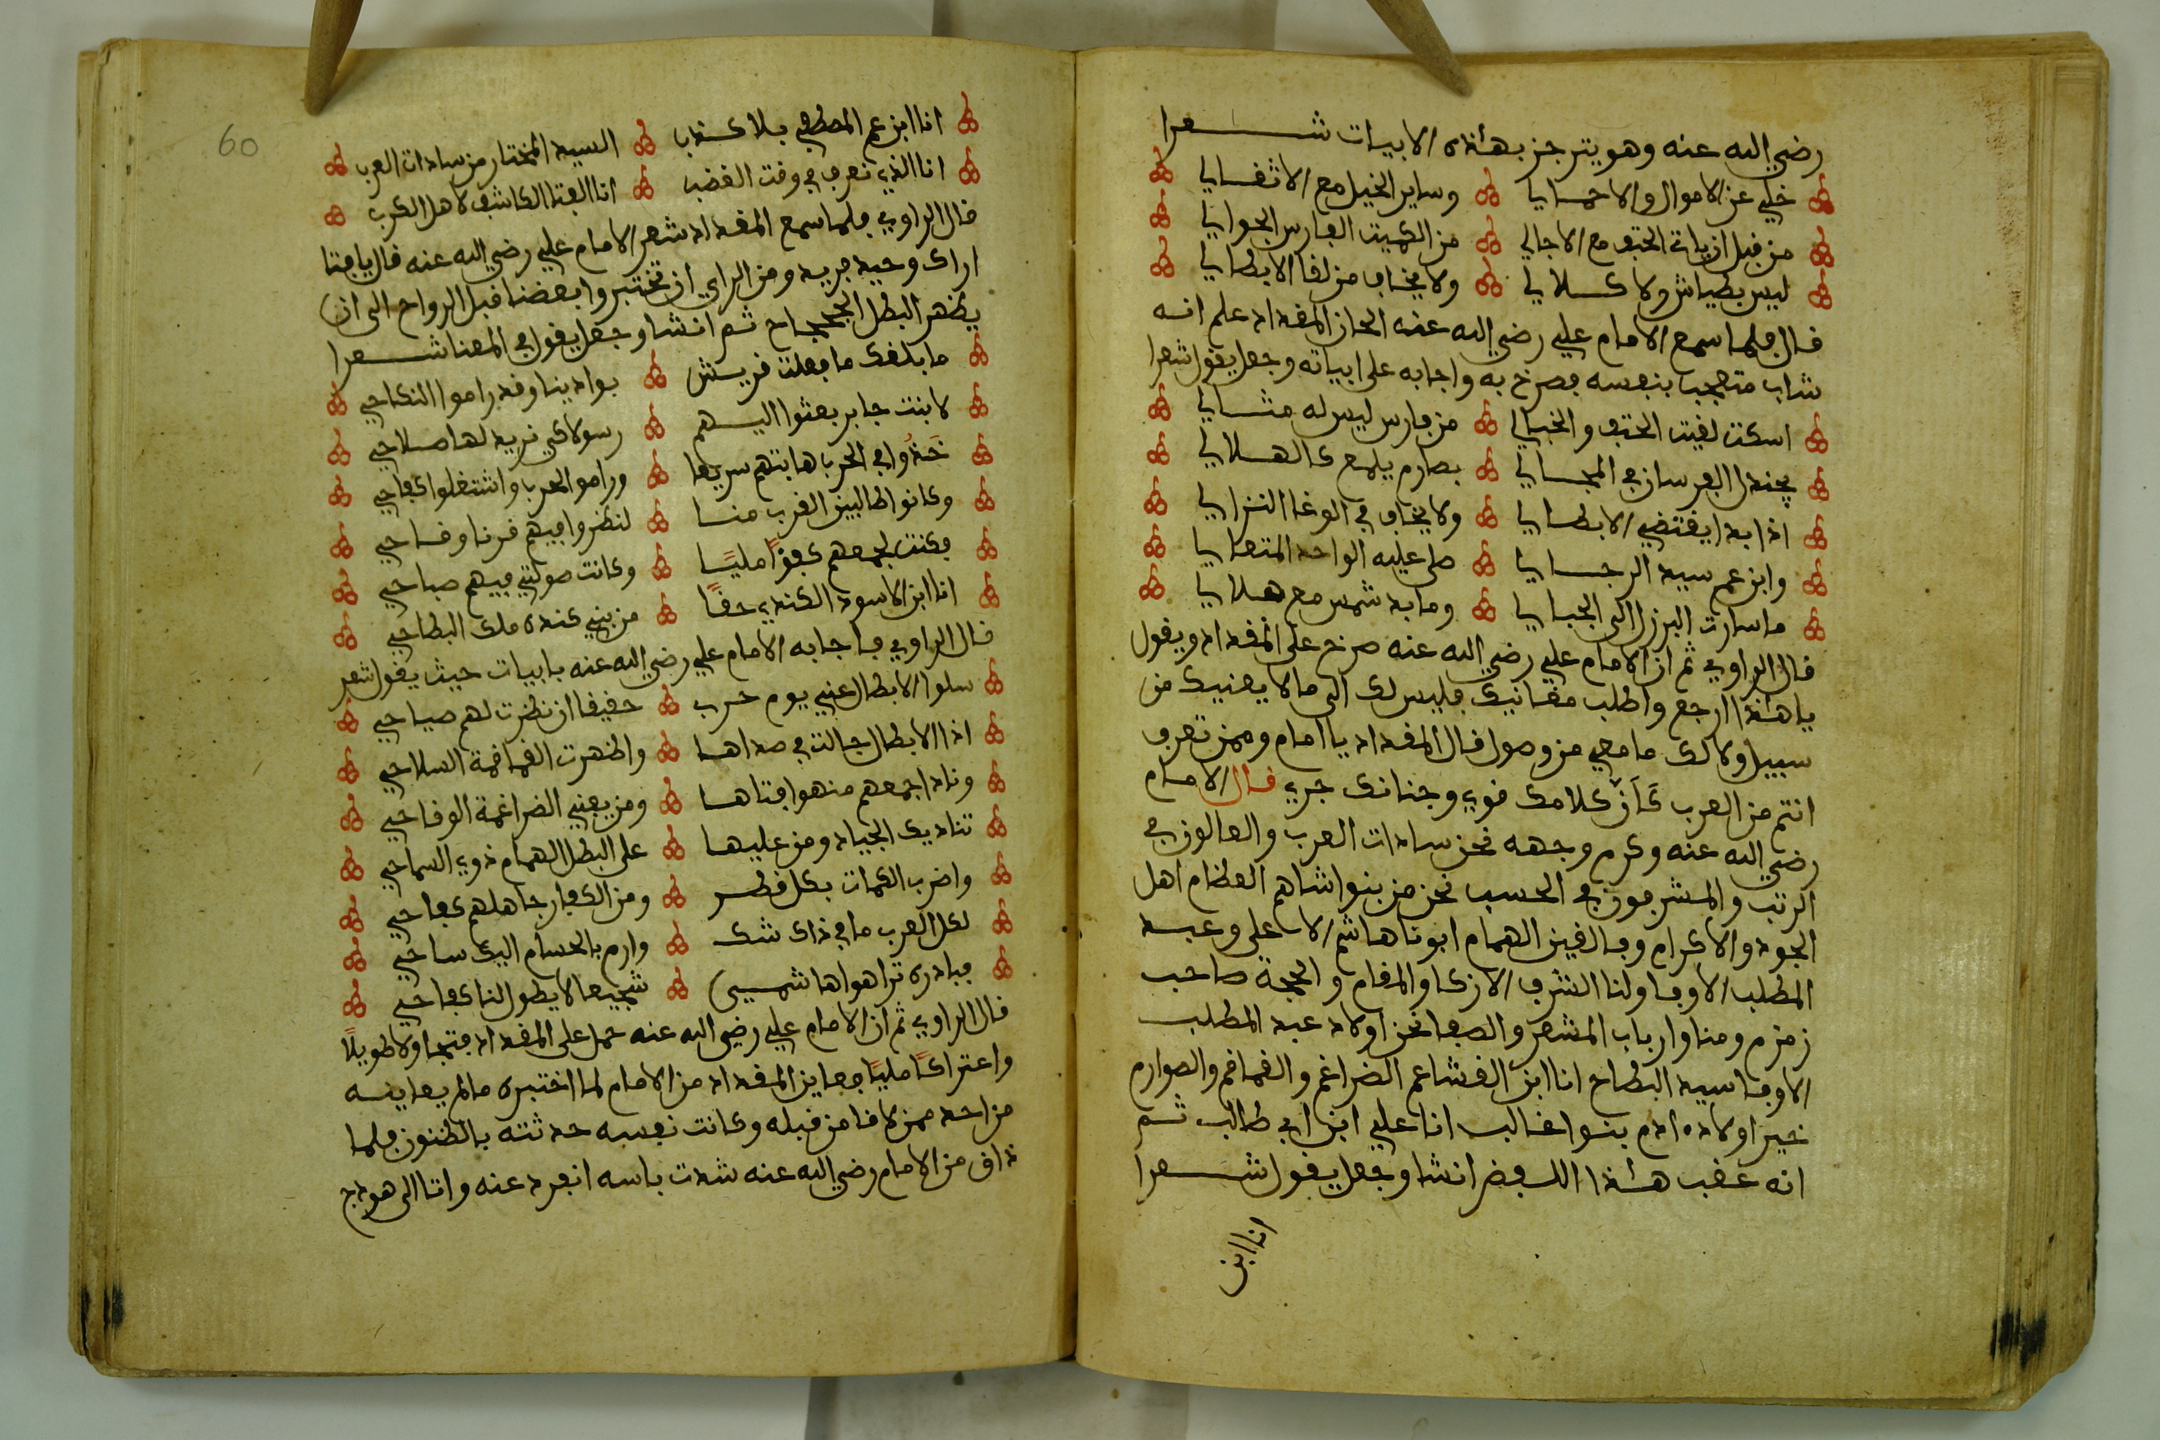 رضي الله عنه وهو يترجز بهذه الابيات شعرا
خلي عن الاموال والاحمالي وساير الخيل مع الاثقالي
من قبل ان ياتي الحتف مع الاجالي من الكميت الفارس الجوالي
ليس بطياش ولا كلالي ولا يخاف من لقا الابطالي
قال فلما سمع الامام علي رضي الله عنه الحان المقداد علم انه
شاب متعجب بنفسه فصرخ به واجابه على ابياته وجعل يقول شعرا
اسكت لقيت الحتف والخبالي من فارس ليس له مثالي
يجندل الفرسان في المجالي بصارم يلمع كالهلالي
اذا بدا يقتضي الابطالي ولا يخاف في الوغا النزالي
وابن عم سيد الرجالي صلى عليه الواحد المتعالي
ما سارت البزل الى الجبالي وما بد شمس مع هلالي
قال الراوي ثم ان الامام علي رضي الله عنه صرخ على المقداد ويقول
يا هذا ارجع واطلب مغانيك فليس لك الى ما لا يعنيك من
سبيل ولا لك ما معي من وصول قال المقداد يا امام وممن تعرف
انتم من العرب كَاَنّ كلامك قوي وجنانك جري قال الامام
رضي الله عنه وكرم وجهه نحن سادات العرب والعالون في
الرتب والمشرفون في الحسب نحن من بنوا هاشم العظام اهل
الجود والاكرام وفالقين الهمام ابونا هاشم الاعلى وعبد
المطلب الاوفا ولنا الشرف الازكا والمقام والحجة صاحب
زمزم ومنا وارباب المشعر والصفا نحن اولاد عبد المطلب
الاوفا سيد البطاح انا ابن القشاعم الضراغم والقماقم والصوارم
خير اولاده ادم بنوا غالب انا علي ابن ابي طالب ثم
انه عقب هذا اللفض انشا وجعل يقول شعرا
انا ابن
60
انا ابن عم المصطفي بلا كذب السيد المختار من سادات العرب
انا الذي نعرف في وقت الغضب انا الفتا الكاشف لاهل الكرب
قال الراوي فلما سمع المقداد شعر الامام علي رضي الله عنه قال يا فتا
اراك وحيد فريد ومن الراي ان نختبروا بعضنا قبل الرواح الى ان
يظهر البطل الجحجاح ثم انشا وجعل يقول في المعنا شعرا
ما بلغك ما فعلت قريش بوادينا وقد راموا النكاحي
لابنت جابر بعثوا اليهم رسولا كي نريد لها صلاحي
خَذُوا في الحرب هابتهم سريعا وراموا الحرب واشتغلوا كفاحي
وكانوا طالبين القرب منا لنظروا فيهم قرنا وقاحي
فكنت لجمعهم كفوًا مليًا وكانت صولتي فيهم صباحي
انا ابن الاسود الكندي حقًا من بني كنده ملك البطاحي
قال الراوي فاجابه الامام علي رضي الله عنه بابيات حيث يقول شعر
سلوا الابطال عني يوم حرب حقيقا ان نظرت لهم صياحي
اذا الابطال جالت في صداها واظهرت القماقمة السلاحي
وناد اجمعهم منهوا فتاها ومن يفني الضراغمة الوقاحي
تناديك الجياد ومن عليها على البطل الهمام ذوي السماحي
واضرب الكمات بكل قطر ومن الكفار جاهلهم كفاحي
لكل العرب ما في ذاك شك وارم بالحسام اليك ساحي
فبادره تراهوا هاشمي شجيعا لا يطول لنا كفاحي
قال الراوي ثم ان الامام علي رضي الله عنه حمل على المقداد فتجاولا طويلًا
واعتراكًا مليًا فعاين المقداد من الامام لما اختبره ما لم يعاينه
من احد ممن لاقا من قبله وكانت نفسه حدثته بالظنون فلما
ذاق من الامام رضي الله عنه شدت باسه انفرد عنه واتا الى هودج